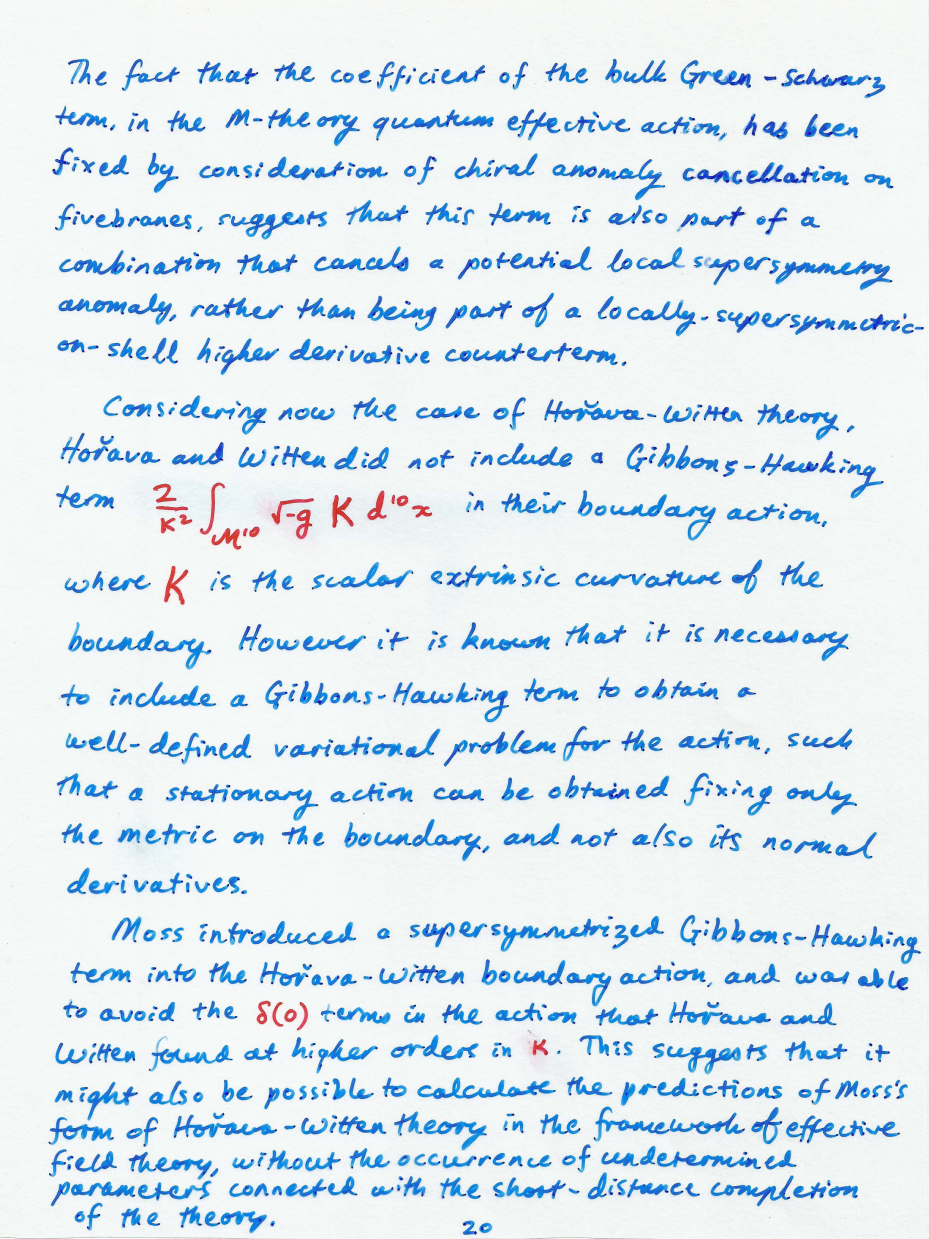 The fact that the coefficient of the bulk Green-Schwarz
term, in the M-theory quantum effective action, has been
fixed by consideration of chiral anomaly cancellation on
fivebranes, suggests that this term is also part of a
combination that cancels a potential local supersymmetry
anomaly, rather than being part of a locally-supersymmetric-
on-shell higher derivative counterterm.
Considering now the case of Hořava-Witten theory,
Hořava and Witten did not include a Gibbons-Hawking
term 2/κ² ∫_M¹⁰ √-g K d¹⁰x in their boundary action,
where K is the scalar extrinsic curvature of the
boundary. However it is known that it is necessary
to include a Gibbons-Hawking term to obtain a
well-defined variational problem for the action, such
that a stationary action can be obtained fixing only
the metric on the boundary, and not also its normal
derivatives.
Moss introduced a supersymmetrized Gibbons-Hawking
term into the Hořava-Witten boundary action, and was able
to avoid the δ(0) terms in the action that Hořava and
Witten found at higher orders in κ. This suggests that it
might also be possible to calculate the predictions of Moss's
form of Hořava-Witten theory in the framework of effective
field theory, without the occurrence of undetermined
parameters connected with the short-distance completion
of the theory.
20